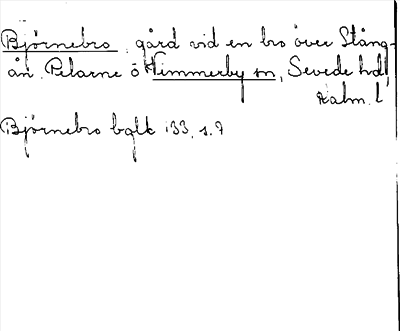 Björnebro, gård vid en bro över Stång-
ån. Pelarne o Vimmerby sn, Sevede hd,
Kalm. l.
Björnebro bglk 133, s. 7